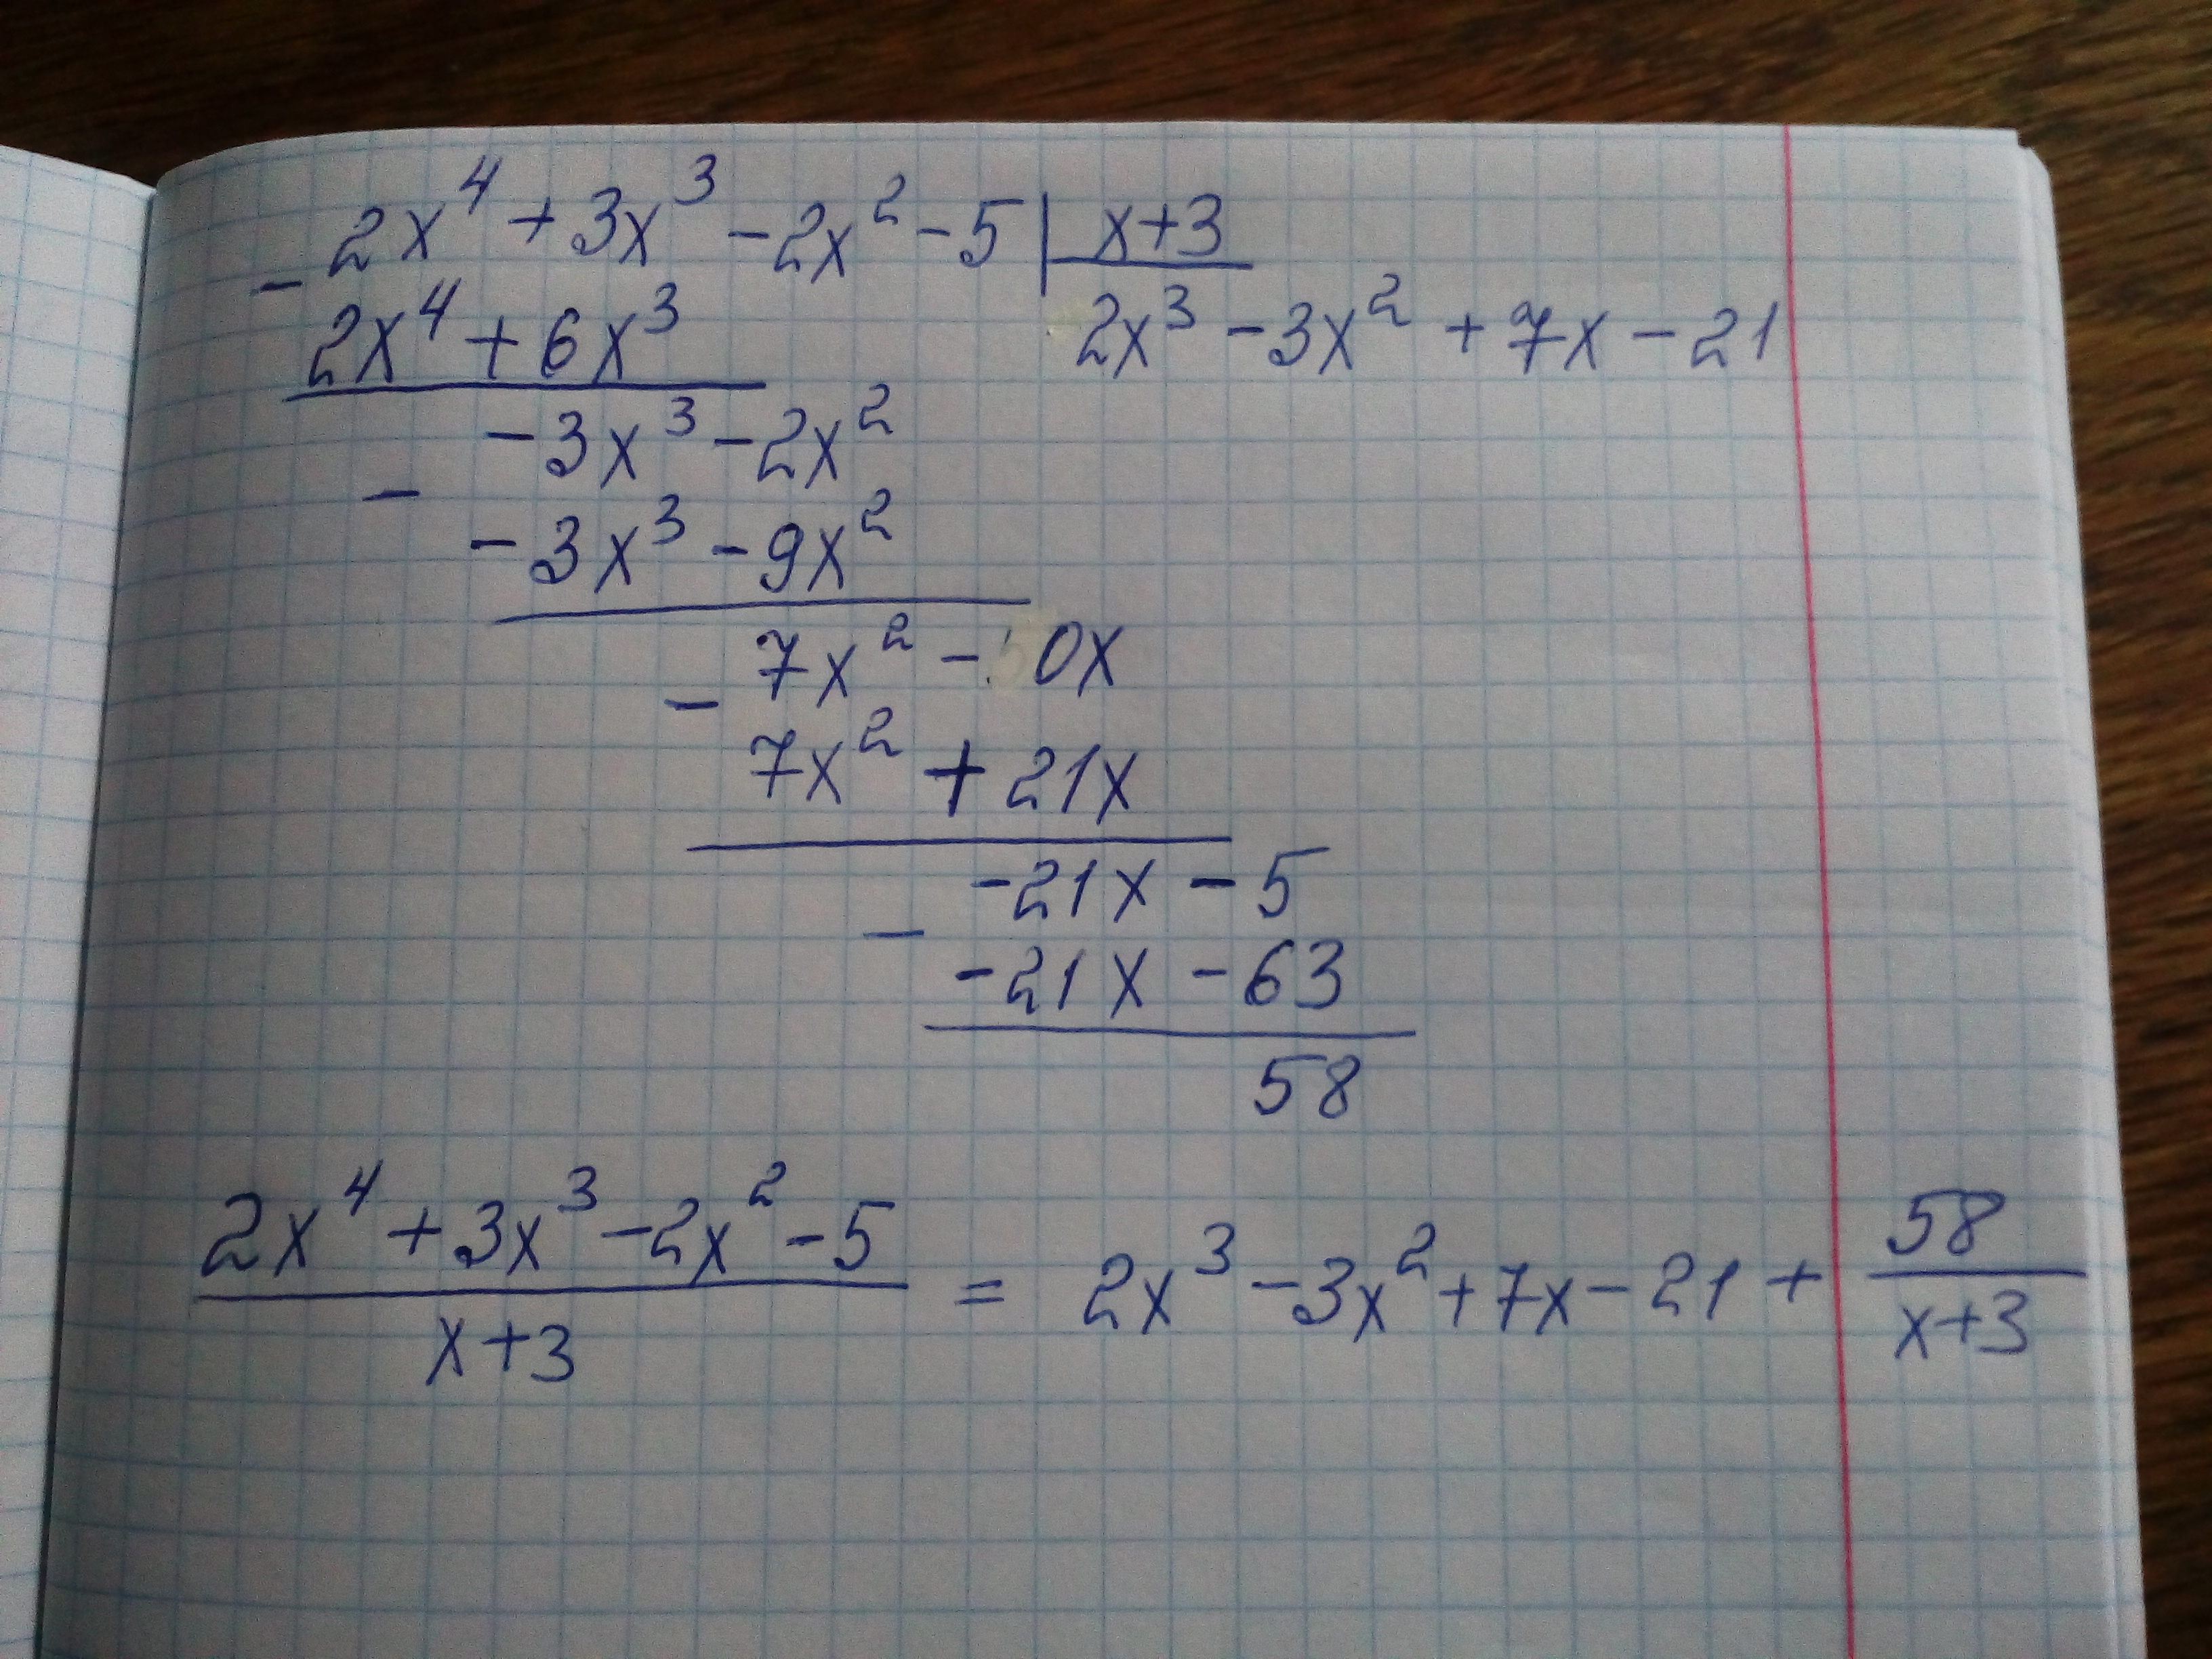 2x⁴ + 3x³ - 2x² - 5 | x+3
- 2x⁴ + 6x³ 2x³ - 3x² + 7x - 21
-3x³ - 2x²
- -3x³ - 9x²
7x² - 0x
- 7x² + 21x
-21x - 5
- -21x - 63
58
(2x⁴ + 3x³ - 2x² - 5)/(x+3) = 2x³ - 3x² + 7x - 21 + 58/(x+3)